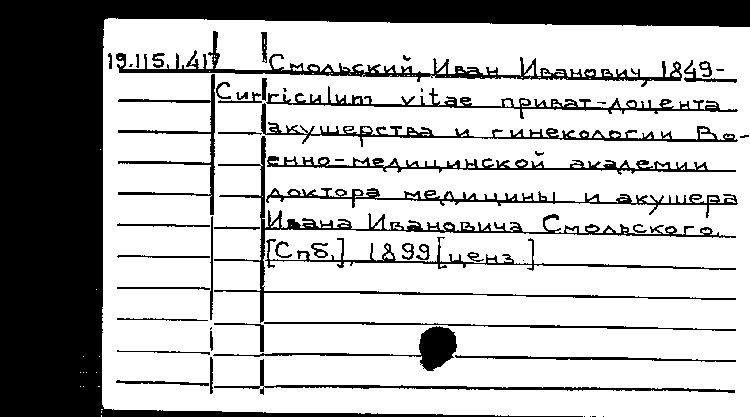 19.115.1.417 Смольский, Иван Иванович, 1849-
Curriculum vitae приват-доцента
акушерства и гинекологии Во-
енно-медицинской академии
доктора медицины и акушера
Ивана Ивановича Смольского.
[Спб.], 1899 [ценз.]